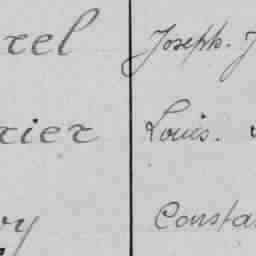 rel Joseph. J
rier Louis.
ry Consta